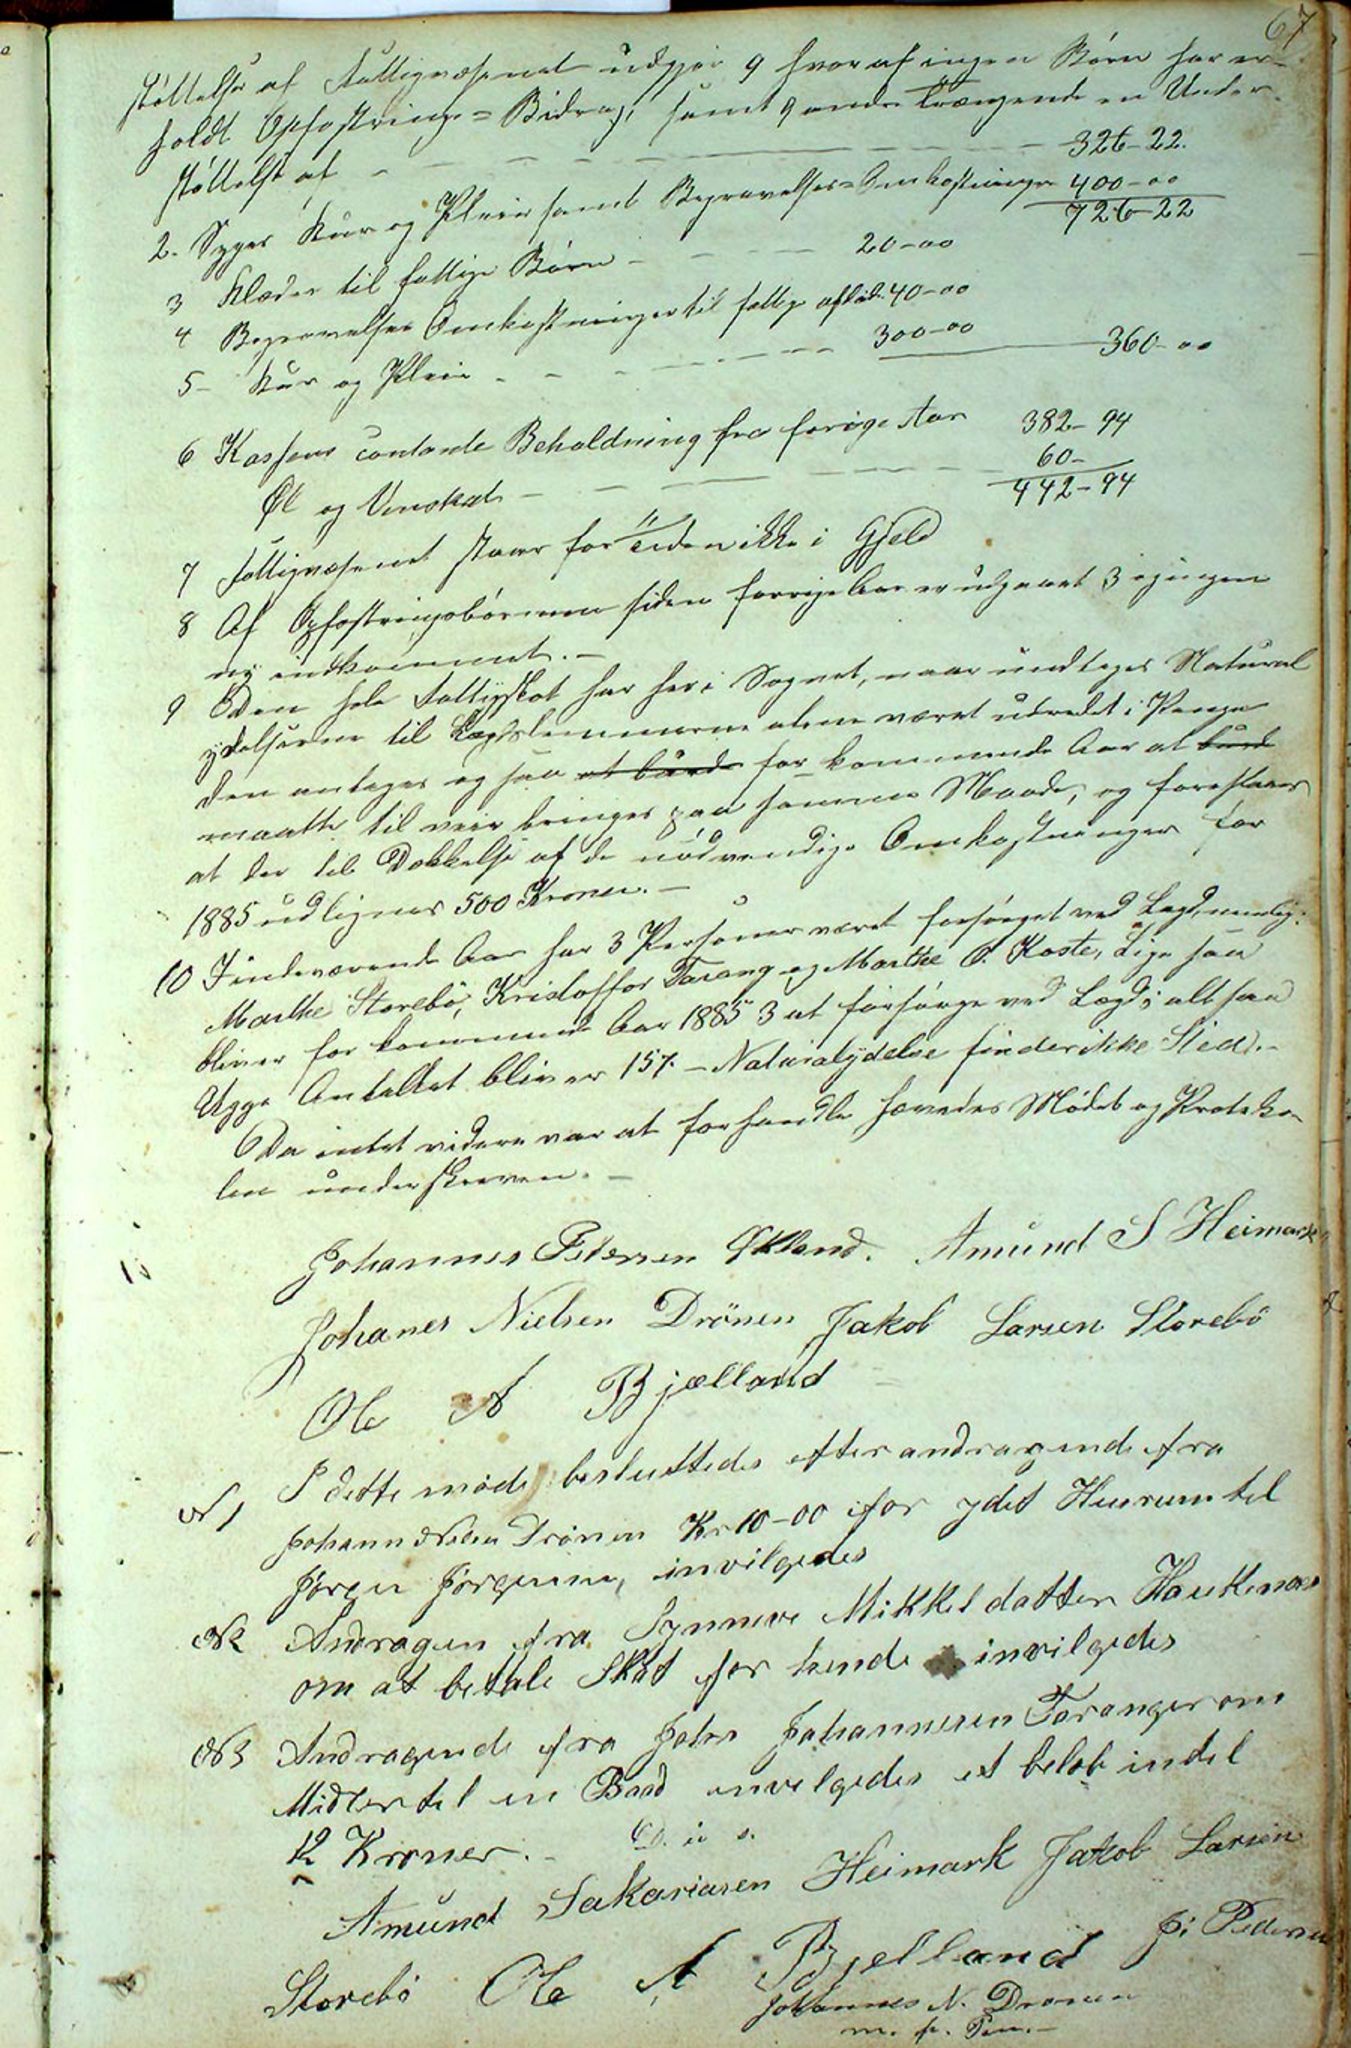 67
støttelse af Fattigvæsenet udgjør 9 hvoraf ingen Børn har er-
holdt Opfostrings=Bidrag, samt 9 andre trængende en Under-
støttelse af - - - - - - 326-22.
2. Syges Kur og Pleie samt Begravelses=Omkostninger 400-00
726-22
3 Klæder til fattige Børn - - - - 20-00
4 Begravelses Omkostninger til fattige afdøde 40-00
5- Kur og Pleie - - - - - - 300-00 360-00
6 Kassens contante Beholdning fra forige Aar 382-94
Øl og Vinskat - - - - - - 60-
442-94
7 Fattigvæsenet staar for tiden ikke i Gjeld
8 Af Opfostringsbørnene siden forrige Aar er udgaaet 3 og ingen
ny indkommet. -
9 Den hele Fattigskat har her i Sognet, naar undtages Natural
ydelserne til Lægdslemmerne alene været udredet i Penge
den antages og saa at burde for kommende Aar at burde
maatte til veie bringes paa samme Maade, og foreslaaes
at der til Dækkelse af de nødvendige Omkostninger for
1885 udlignes 500 Kroner. -
10 I indeværende Aar har 3 Personer været forsørget ved Lægd, nemlig:
Marthe Storebö, Kristoffer Farang og Marthe O. Koste, Lige saa
bliver for kommende Aar 1885 3 at forsørge ved Lægd; alt saa
Antallet bliver 157. - Naturalydelse finder ikke Sted. -
Da intet videre var at forhandle hævedes Mødet og Protoko-
len underskreven. -
Johannes Petersen Økland. Amund S Heimark
Johanes Nielsen Drönen Jakob Larsen Storebö
Ole A Bjælland
N 1 I dette møde besluttedes efter andragende fra
Johann Nielsen Drönen Kr 10-00 for ydet Huusrum til
Jörgen Jörgensen, invilgedes
N2 Andragen fra Synneve Mikkeldatter Haukenæs
om at betale Skat for hende invilgedes
N3 Andragende fra John Johannesen Faranger om
Midler til en Baad invilgedes et beløb indtil
12 Kroner. - D. u s.
Amund Sakariasen Heimark Jakob Larsen
Storebö Ole A Bjelland J. Pedersen
Johannes N. Dronen
m. p. Pen. -